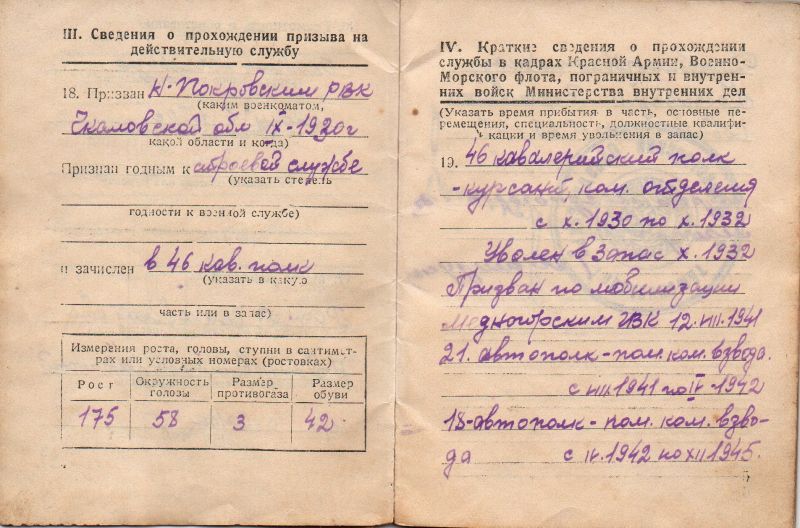 III. Сведения о прохождении призыва на
действительную службу
18. Призван Н-Покровским РВК
(каким военкоматом,
Чкаловской обл IX-1930г
какой области и когда)
Признан годным к строевой службе
(указать степень
годности к военной службе)
и зачислен в 46 кав. полк
(указать в какую
часть или в запас)
Измерения роста, головы, ступни в сантимет-
рах или условных номерах (ростовках)
Рост Окружность головы Размер противогаза Размер обуви
175 58 3 42
IV. Краткие сведения о прохождении
службы в кадрах Красной Армии, Военно-
Морского флота, пограничных и внутрен-
них войск Министерства внутренних дел
(Указать время прибытия в часть, основные пе-
ремещения, специальность, должностные квалифи-
кации и время увольнения в запас)
19. 46 кавалерийский полк
-курсант, ком. отделения
с X.1930 по X.1932
Уволен в запас X.1932
Призван по мобилизации
Медногорским ГВК 12.VIII.1941
21. автополк-пом. ком. взвода.
с VIII.1941 по IV-1942
18-автополк-пом. ком. взво-
да с IV.1942 по XII 1945.